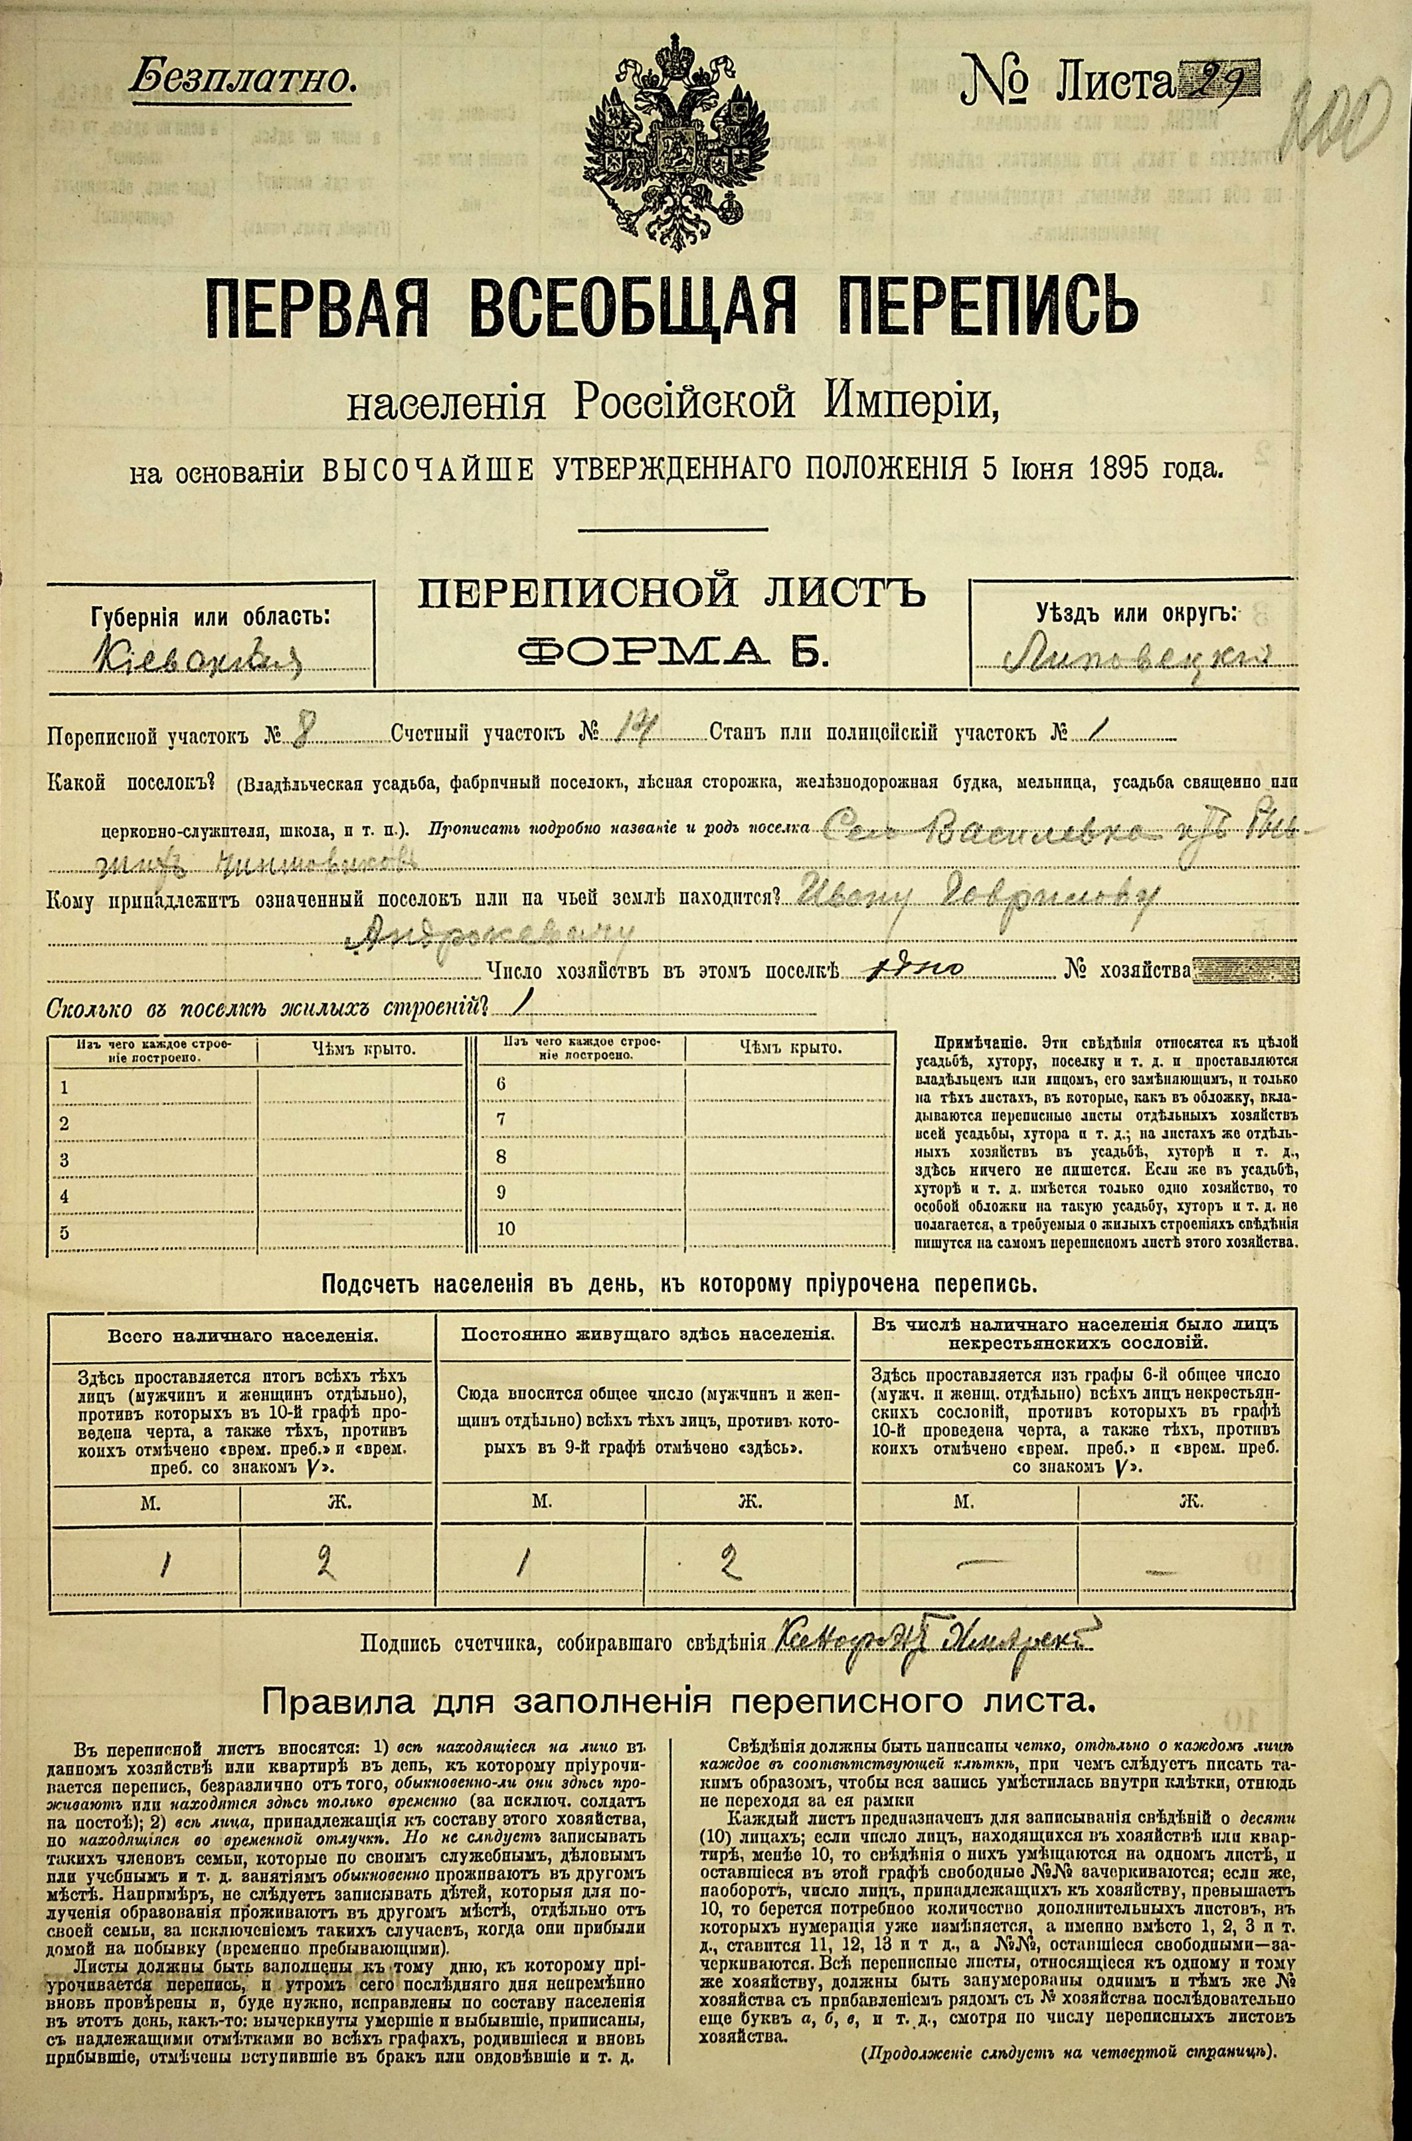 Безплатно.
№ Листа 29
200
ПЕРВАЯ ВСЕОБЩАЯ ПЕРЕПИСЬ
населенія Россійской Имперіи,
на основаніи ВЫСОЧАЙШЕ УТВЕРЖДЕННАГО ПОЛОЖЕНІЯ 5 Іюня 1895 года.
Губернія или область:
Кіевская
ПЕРЕПИСНОЙ ЛИСТЪ
ФОРМА Б.
Уѣздъ или округъ:
Липовецкій
Переписной участокъ № 8 Счетный участокъ № 14 Станъ или полицейскій участокъ № 1
Какой поселокъ? (Владѣльческая усадьба, фабричный поселокъ, лѣсная сторожка, желѣзнодорожная будка, мельница, усадьба священно или
церковно-служителя, школа, и т. п.). Прописать подробно названіе и родъ поселка Село Василевка
чиншовиковъ
Кому принадлежитъ означенный поселокъ или на чьей землѣ находится? Ивану Гаврилову
Число хозяйствъ въ этомъ поселкѣ одно № хозяйства
Сколько въ поселкѣ жилыхъ строеній? 1
Изъ чего каждое строе-
ніе построено.
Чѣмъ крыто.
Изъ чего каждое строе-
ніе построено.
Чѣмъ крыто.
1 6
2 7
3 8
4 9
5 10
Примѣчаніе. Эти свѣдѣнія относятся къ цѣлой
усадьбѣ, хутору, поселку и т. д. и проставляются
владѣльцемъ или лицомъ, его замѣняющимъ, и только
на тѣхъ листахъ, въ которые, какъ въ обложку, вкла-
дываются переписные листы отдѣльныхъ хозяйствъ
всей усадьбы, хутора и т. д.; на листахъ же отдѣль-
ныхъ хозяйствъ въ усадьбѣ, хуторѣ и т. д.,
здѣсь ничего не пишется. Если же въ усадьбѣ,
хуторѣ и т. д. имѣется только одно хозяйство, то
особой обложки на такую усадьбу, хуторъ и т. д. не
полагается, а требуемыя о жилыхъ строеніяхъ свѣдѣнія
пишутся на самомъ переписномъ листѣ этого хозяйства.
Подсчетъ населенія въ день, къ которому пріурочена перепись.
Всего наличнаго населенія.
Здѣсь проставляется итогъ всѣхъ тѣхъ
лицъ (мужчинъ и женщинъ отдѣльно),
противъ которыхъ въ 10-й графѣ про-
ведена черта, а также тѣхъ, противъ
коихъ отмѣчено «врем. преб.» и «врем.
преб. со знакомъ V».
М. Ж.
1 2
Постоянно живущаго здѣсь населенія.
Сюда вносится общее число (мужчинъ и жен-
щинъ отдѣльно) всѣхъ тѣхъ лицъ, противъ кото-
рыхъ въ 9-й графѣ отмѣчено «здѣсь».
М. Ж.
1 2
Въ числѣ наличнаго населенія было лицъ
некрестьянскихъ сословій.
Здѣсь проставляется изъ графы 6-й общее число
(мужч. и женщ. отдѣльно) всѣхъ лицъ некрестьян-
скихъ сословій, противъ которыхъ въ графѣ
10-й проведена черта, а также тѣхъ, противъ
коихъ отмѣчено «врем. преб.» и «врем. преб.
со знакомъ V».
М. Ж.
— —
Подпись счетчика, собиравшаго свѣдѣнія
Правила для заполненія переписного листа.
Въ переписной листъ вносятся: 1) всѣ находящіеся на лицо въ
данномъ хозяйствѣ или квартирѣ въ день, къ которому пріурочи-
вается перепись, безразлично отъ того, обыкновенно-ли они здѣсь про-
живаютъ или находятся здѣсь только временно (за исключ. солдатъ
на постоѣ); 2) всѣ лица, принадлежащія къ составу этого хозяйства,
но находящіяся во временной отлучкѣ. Но не слѣдуетъ записывать
такихъ членовъ семьи, которые по своимъ служебнымъ, дѣловымъ
или учебнымъ и т. д. занятіямъ обыкновенно проживаютъ въ другомъ
мѣстѣ. Напримѣръ, не слѣдуетъ записывать дѣтей, которыя для по-
лученія образованія проживаютъ въ другомъ мѣстѣ, отдѣльно отъ
своей семьи, за исключеніемъ такихъ случаевъ, когда они прибыли
домой на побывку (временно пребывающими).
Листы должны быть заполнены къ тому дню, къ которому прі-
урочивается перепись, и утромъ сего послѣдняго дня непремѣнно
вновь провѣрены и, буде нужно, исправлены по составу населенія
въ этотъ день, какъ-то: вычеркнуты умершіе и выбывшіе, приписаны,
съ надлежащими отмѣтками во всѣхъ графахъ, родившіеся и вновь
прибывшіе, отмѣчены вступившіе въ бракъ или овдовѣвшіе и т. д.
Свѣдѣнія должны быть написаны четко, отдѣльно о каждомъ лицѣ
каждое въ соотвѣтствующей клѣткѣ, при чемъ слѣдуетъ писать та-
кимъ образомъ, чтобы вся запись умѣстилась внутри клѣтки, отнюдь
не переходя за ея рамки
Каждый листъ предназначенъ для записыванія свѣдѣній о десяти
(10) лицахъ; если число лицъ, находящихся въ хозяйствѣ или квар-
тирѣ, менѣе 10, то свѣдѣнія о нихъ умѣщаются на одномъ листѣ, и
оставшіеся въ этой графѣ свободные №№ зачеркиваются; если же,
наоборотъ, число лицъ, принадлежащихъ къ хозяйству, превышаетъ
10, то берется потребное количество дополнительныхъ листовъ, въ
которыхъ нумерація уже измѣняется, а именно вмѣсто 1, 2, 3 и т.
д., ставится 11, 12, 13 и т д., а №№, оставшіеся свободными—за-
черкиваются. Всѣ переписные листы, относящіеся къ одному и тому
же хозяйству, должны быть занумерованы однимъ и тѣмъ же №
хозяйства съ прибавленіемъ рядомъ съ № хозяйства послѣдовательно
еще буквъ а, б, в, и т. д., смотря по числу переписныхъ листовъ
хозяйства.
(Продолженіе слѣдуетъ на четвертой страницѣ).